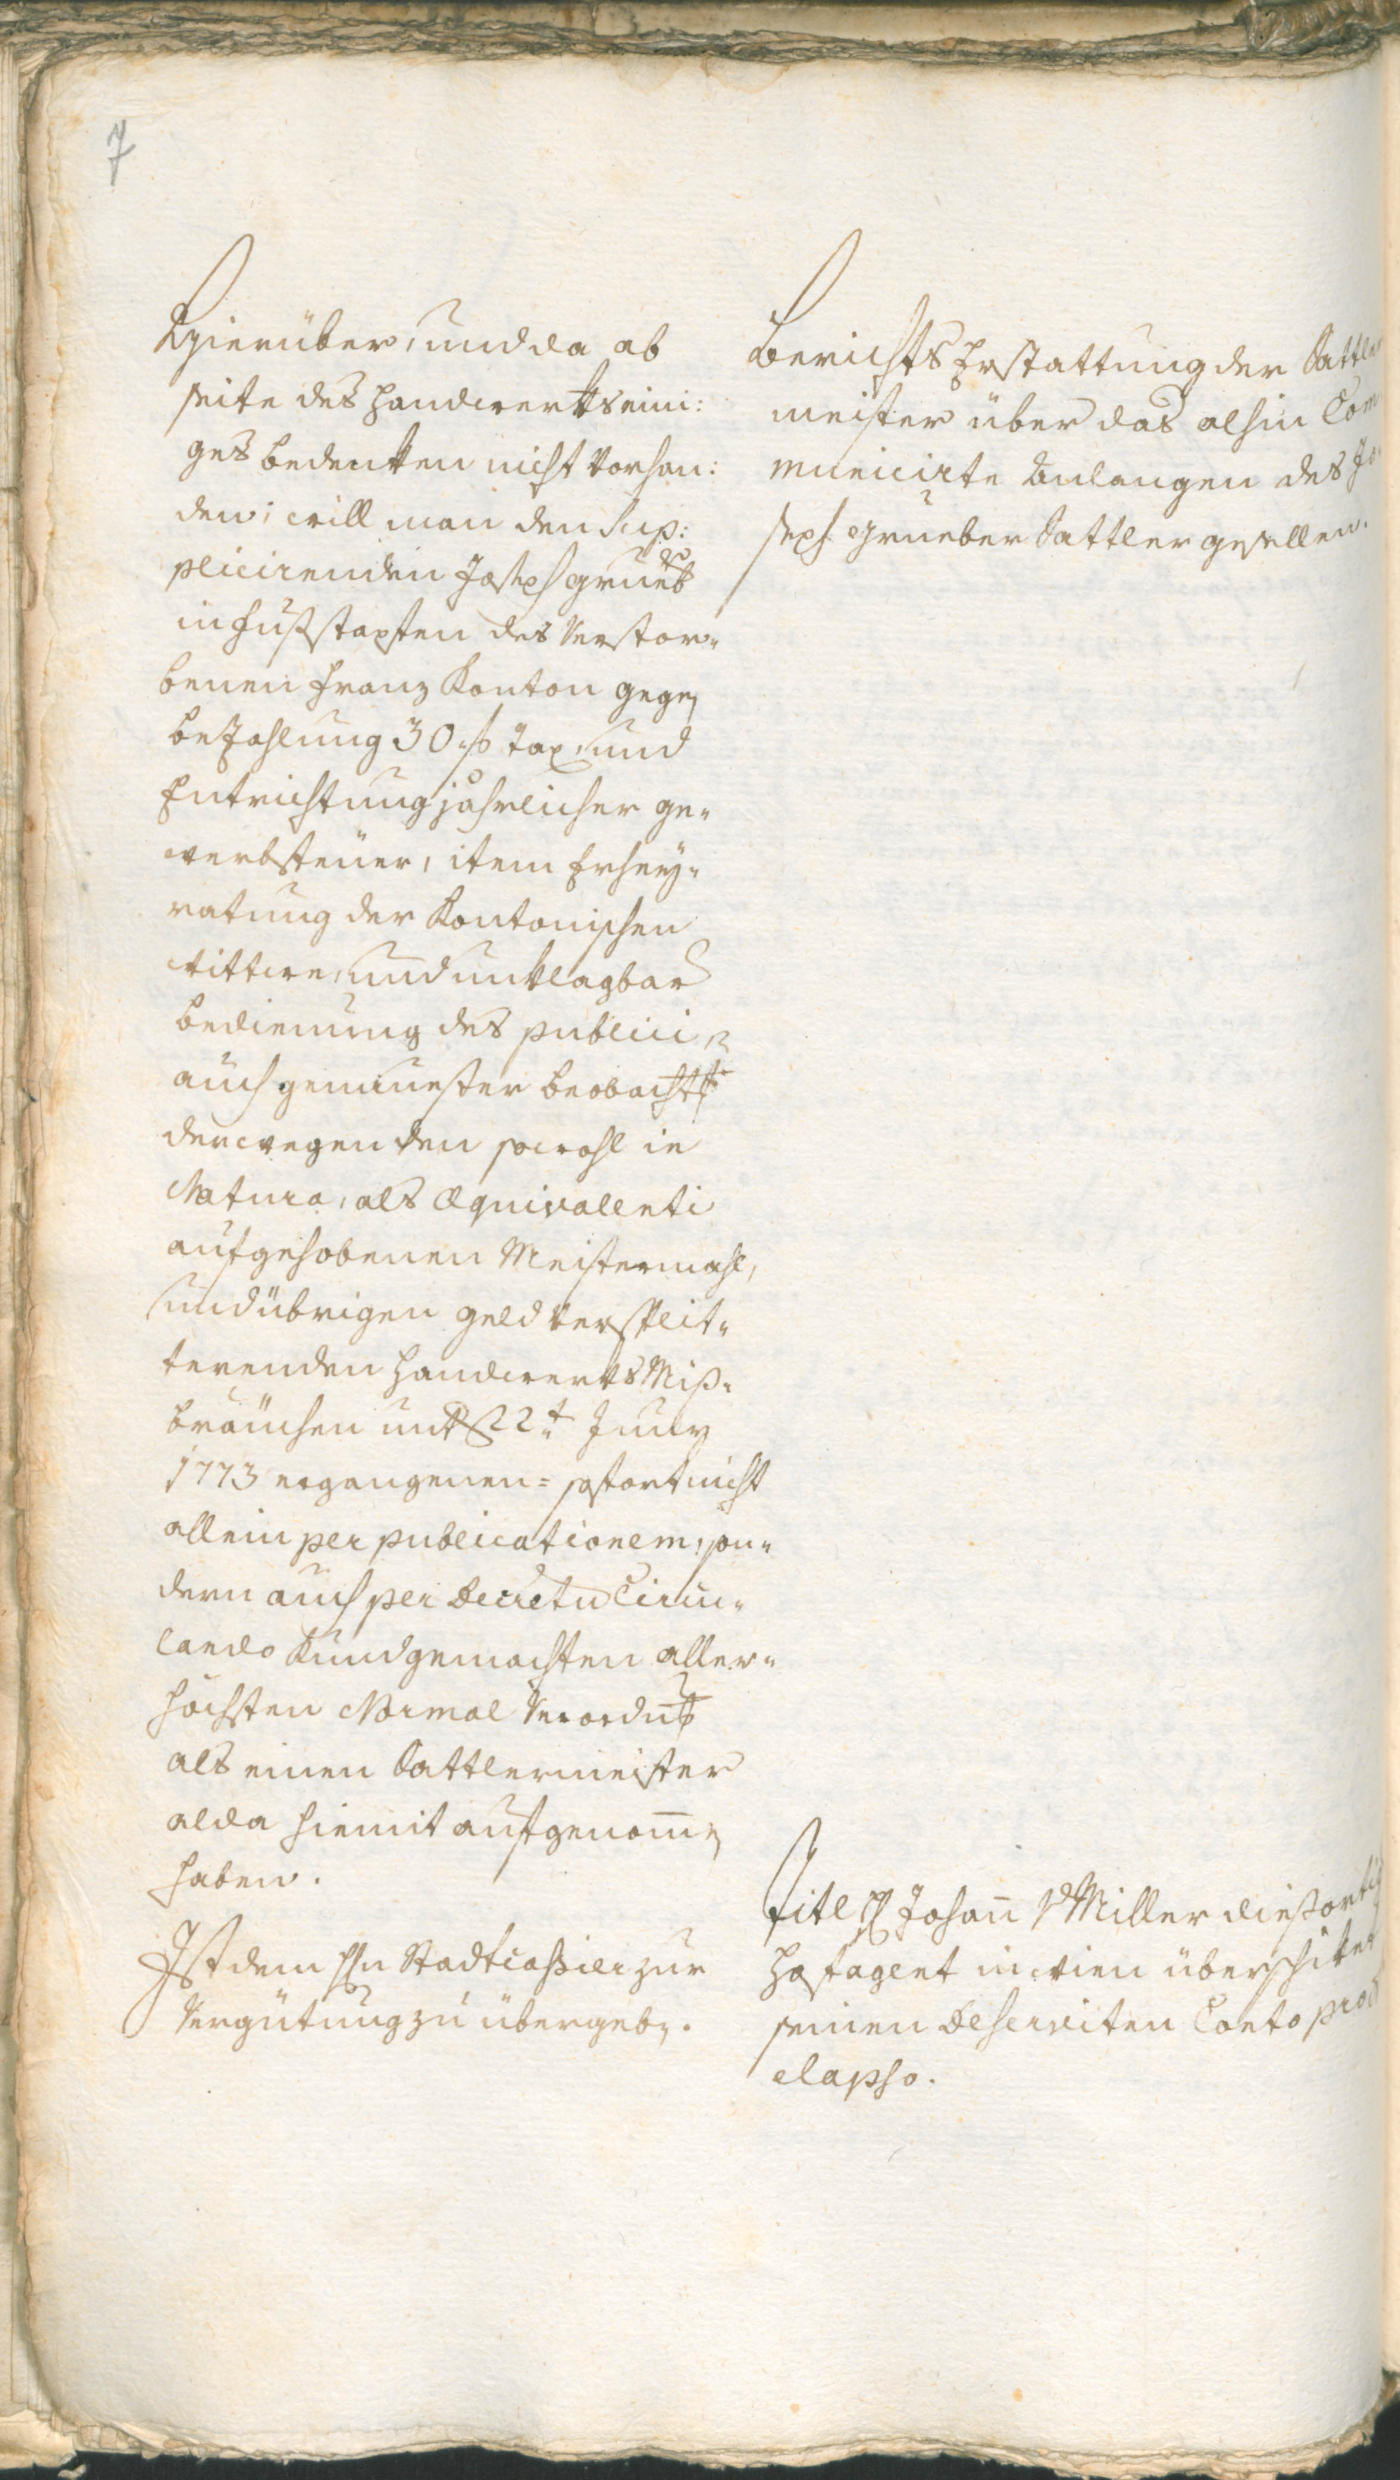 7
Hierüber, und da ab
seite des Handwerkts eini:
ges bedenken nicht Vorhan:
den; will man den Sup:
plicirenden Joseph grueb
in fußstapfen des Verstor„
benen Franz Konton gegen
bezahlung 30 f Tax, und
Entrichtung jahrlicher ge„
werbsteüer, item Erhey„
ratung der Kontonischen
Wittwe, und unklagbar
bedienung des publici,
auch genauester beobacht
der wegen den sowohl in
Natura, als Æquivalenti
aufgehobenen Meistermahl,
und übrigen geld Versplit„
terenden Handwerks Miß„
bräuchen unt 22t Juny
1773 ergangenen= sofort nicht
allein per publicationem, son„
dern auch per Decretu Circu„
lando Kundgemachten aller„
höchsten Normal Verordn
als einen Sattlermeister
alda hiemit aufgenomen
haben.
Ist dem Hn Stadtcassier zur
Vergütung zu übergeben.
Berichts Erstattung der Sattler
meister über das alhin Com
municirte Anlangen des Jo
seph Grueber Sattler gesellen.
Titl H Johann Miller diesortig
Hofagent in Wien überschiket
seinen Deserviten Conto pro
elapso.